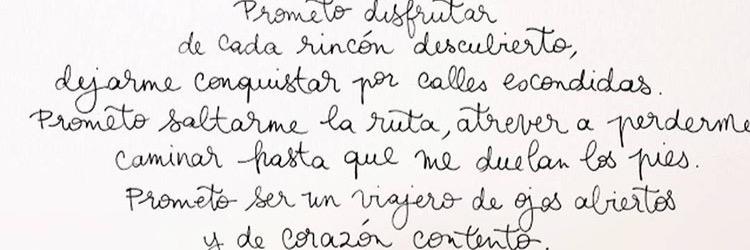 Prometo disfrutar
de cada rincón descubierto,
dejarme conquistar por calles escondidas.
Prometo saltarme la ruta, atrever a perderme
caminar hasta que me duelan los pies.
Prometo ser un viajero de ojos abiertos
y de corazón contento.